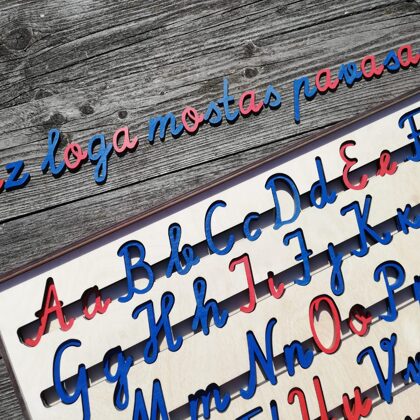 az loga mostas pavasa
A a B b C c D d E e F
G g H h I i J j K k
M m N n O o P p
U u V